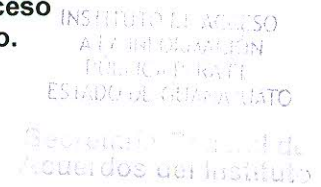 ceso
o.
INSTITUTO DE ACCESO
A LA INFORMACIÓN
ESTADO DE GUANAJUATO
Secretaría General de
Acuerdos del Instituto